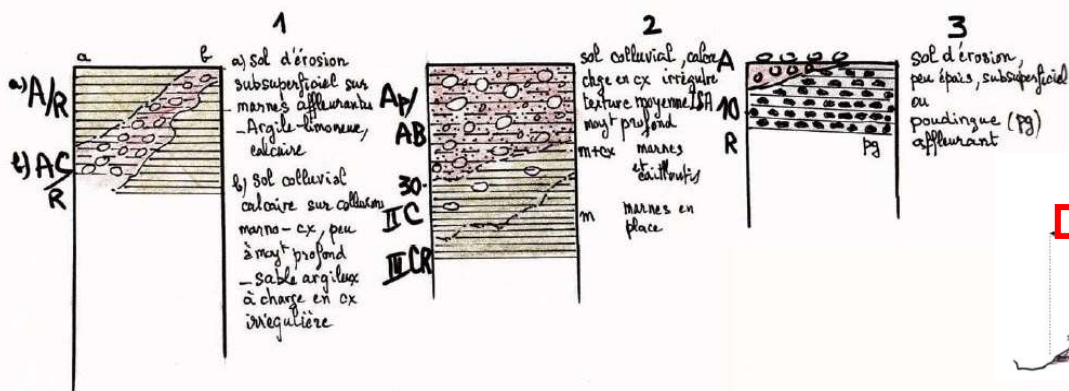 1
a b
a) A/R
b) AC/R
a) sol d'érosion
subsuperficiel sur
marnes affleurantes
- Argile-limoneuse,
calcaire
b) sol colluvial
calcaire sur colluvions
marno-cx, peu
à moyt profond
- sable argileux
à charge en cx
irrégulière
2
Ap/
AB
30-
II C
III CR
sol colluvial, calcaire
chge en cx irrégulre
texture moyenne LSA
moyt profond
m+cx marnes
et
cailloutis
m marnes en
place
3
A
10
R
pg
sol d'érosion,
peu épais, subsuperficiel
ou
poudingue (pg)
affleurant